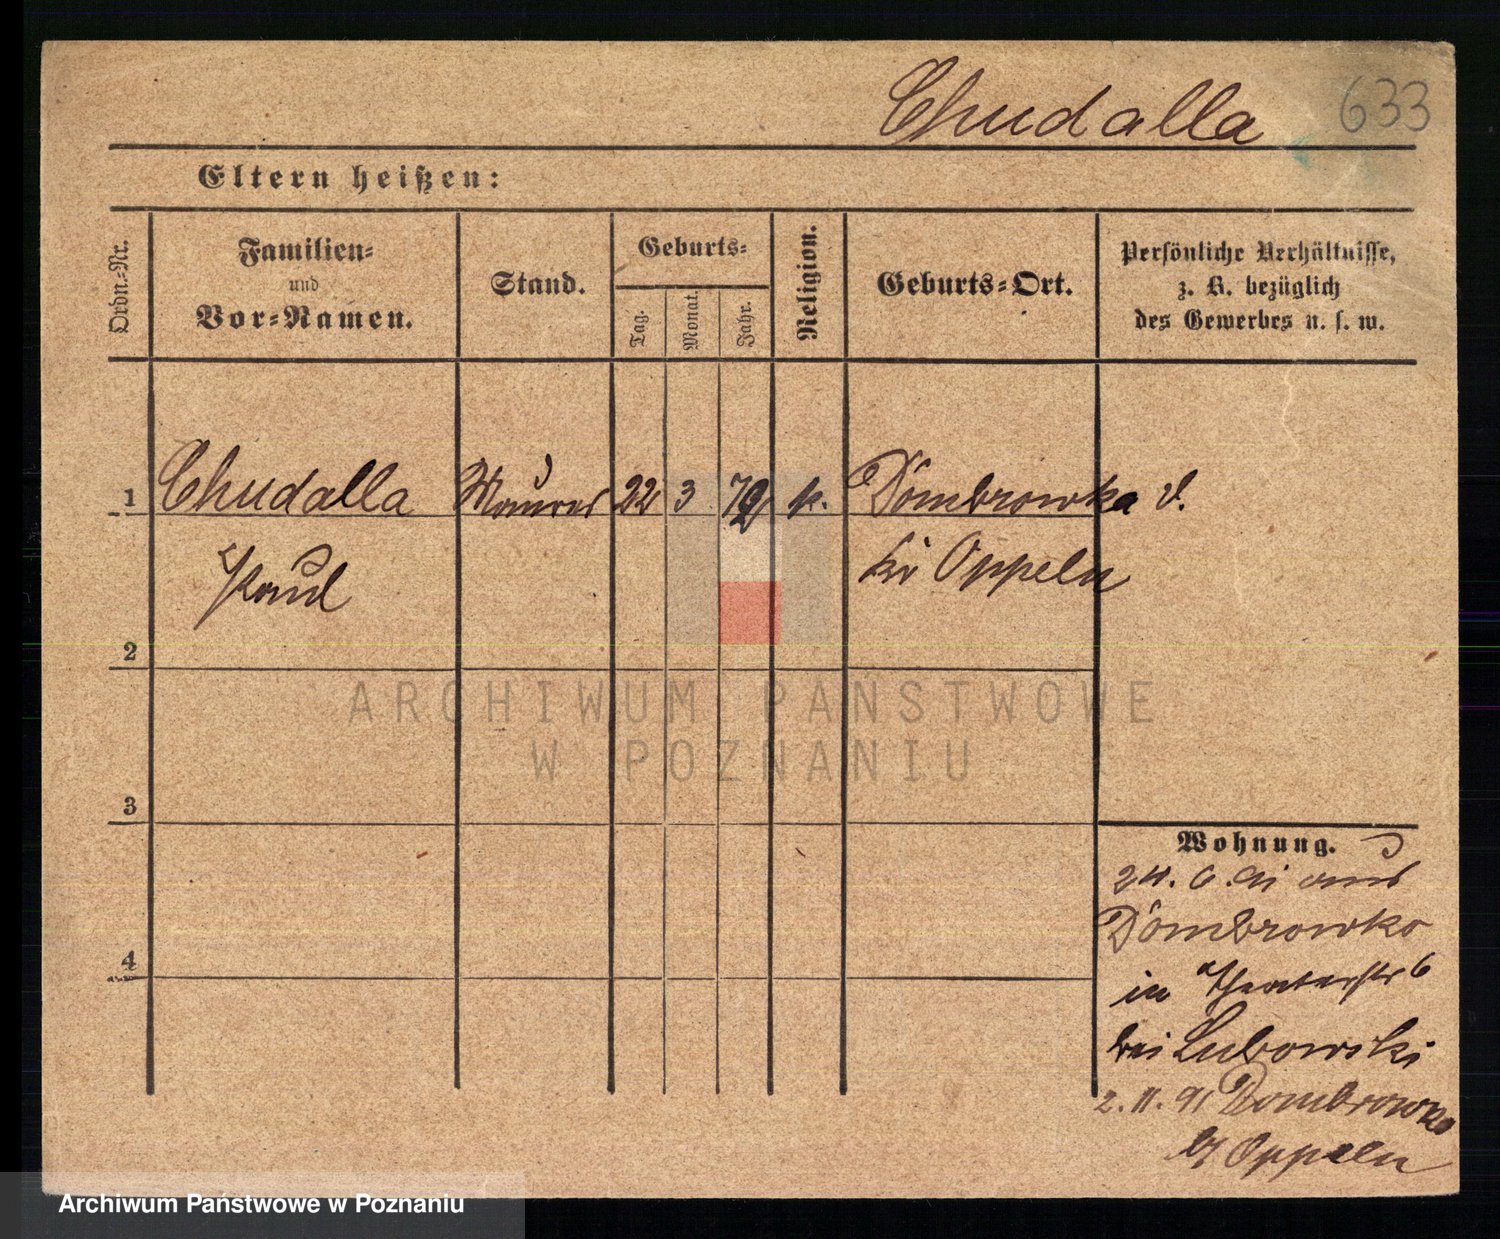 Chudalla 633
Eltern heißen:
Ordn.-Nr.
Familien-
und
Vor-Namen.
Stand.
Geburts-
Tag.
Monat.
Jahr.
Religion.
Geburts-Ort.
Persönliche Verhältnisse,
z. B. bezüglich
des Gewerbes u. s. w.
1 Chudalla Maurer 22 3 72 k. Dombrowka
Paul Oppeln
2
ARCHIWUM PAŃSTWOWE
W POZNANIU
3
Wohnung.
24. 6. 91 aus
Dombrowka
in Theaterstr 6
bei Lubowski
2. 11. 91 Dombrowka
b/ Oppeln
4
Archiwum Państwowe w Poznaniu